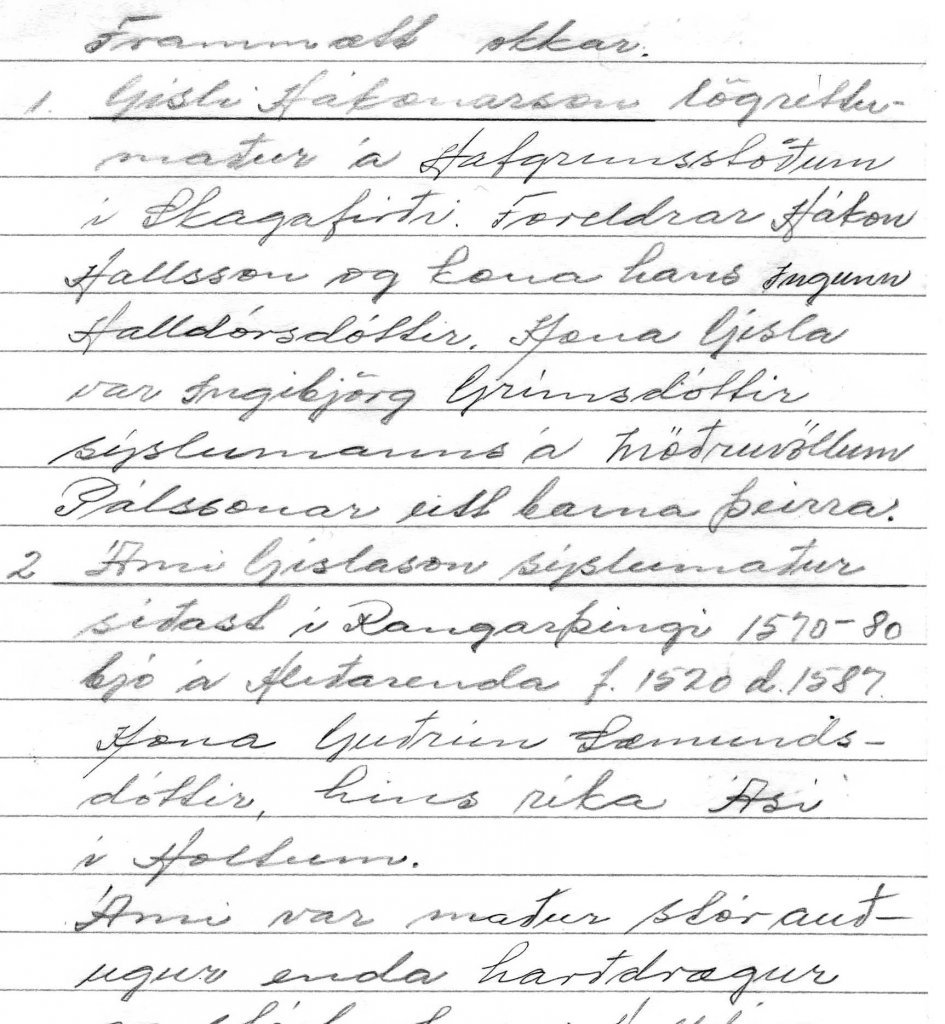 Frammætt okkar.
1. Gisli Hákonarson lögréttu-
maður á Hafgrimsstöðum
i Skagafirði. Foreldrar Hákon
Hallsson og kona hans Ingunn
Halldórsdóttir. Kona Gisla
var Ingibjörg Grimsdóttir
sýslumanns á Möðruvöllum
Pálssonar eitt barna þeirra.
2 Árni Gislason sýslumaður
siðast i Rangarþingi 1570-80
bjó á Hliðarenda f. 1520 d. 1587.
Kona Guðrún Sæmunds-
dóttir, hins rika Ási
i Holtum.
Árni var maður stórauð-
ugur enda harðdrægur